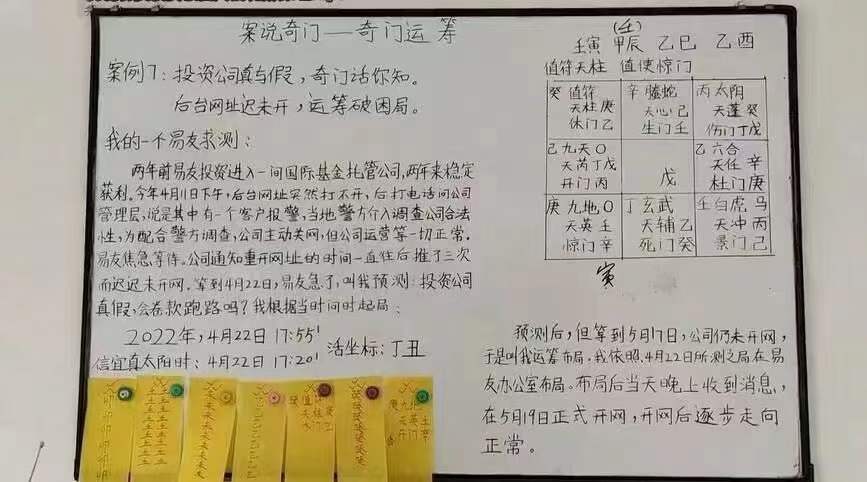 案说奇门——奇门运筹
案例7：投资公司真与假，奇门话你知。
后台网址迟未开，运筹破困局。
我的一个易友求测：
两年前易友投资进入一间国际基金托管公司，两年来稳定
获利。今年4月11日下午，后台网址突然打不开，后打电话问公司
管理层，说是其中有一个客户报警，当地警方介入调查公司合法
性，为配合警方调查，公司主动关网，但公司运营等一切正常。
易友焦急等待。公司通知重开网址的时间一直往后推了三次
而迟迟未开网。等到4月22日，易友急了，叫我预测：投资公司
真假，会卷款跑路吗？我根据当时间时起局：
2022年，4月22日 17:55'
信宜真太阳时：4月22日 17:20'
活坐标：丁丑
(壬)
壬寅 甲辰 乙巳 乙酉
值符天柱 值使惊门
癸 值符
天柱庚
休门乙
辛 螣蛇
天心己
生门壬
丙 太阴
天蓬癸
伤门丁戊
己九天O
天芮丁戊
开门丙
戊
乙六合
天任辛
杜门庚
庚 九地O
天英壬
惊门辛
丁玄武
天辅乙
死门癸
壬白虎 马
天冲丙
景门己
寅
预测后，但等到5月17日，公司仍未开网，
于是叫我运筹布局，我依照4月22日所测之局在易
友办公室布局。布局后当天晚上收到消息，
在5月19日正式开网，开网后逐步走向
正常。